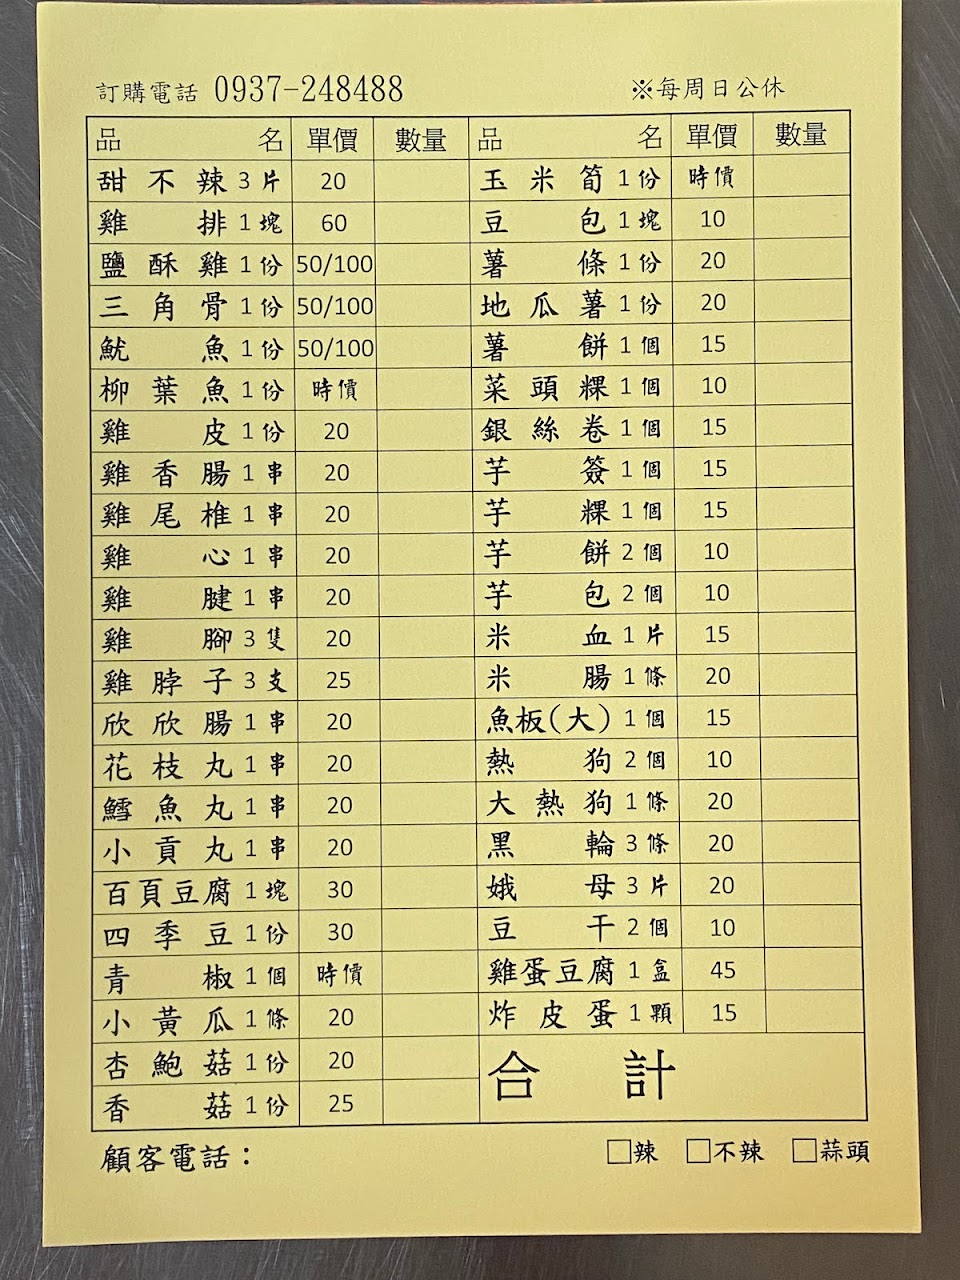 訂購電話 0937-248488 ※每周日公休
品名 單價 數量 品名 單價 數量
甜不辣3片 20 玉米筍1份 時價
雞排1塊 60 豆包1塊 10
鹽酥雞1份 50/100 薯條1份 20
三角骨1份 50/100 地瓜薯1份 20
魷魚1份 50/100 薯餅1個 15
柳葉魚1份 時價 菜頭粿1個 10
雞皮1份 20 銀絲卷1個 15
雞香腸1串 20 芋簽1個 15
雞尾椎1串 20 芋粿1個 15
雞心1串 20 芋餅2個 10
雞腱1串 20 芋包2個 10
雞腳3隻 20 米血1片 15
雞脖子3支 25 米腸1條 20
欣欣腸1串 20 魚板(大)1個 15
花枝丸1串 20 熱狗2個 10
鱈魚丸1串 20 大熱狗1條 20
小貢丸1串 20 黑輪3條 20
百頁豆腐1塊 30 娥母3片 20
四季豆1份 30 豆干2個 10
青椒1個 時價 雞蛋豆腐1盒 45
小黃瓜1條 20 炸皮蛋1顆 15
杏鮑菇1份 20 合計
香菇1份 25
顧客電話： □辣 □不辣 □蒜頭